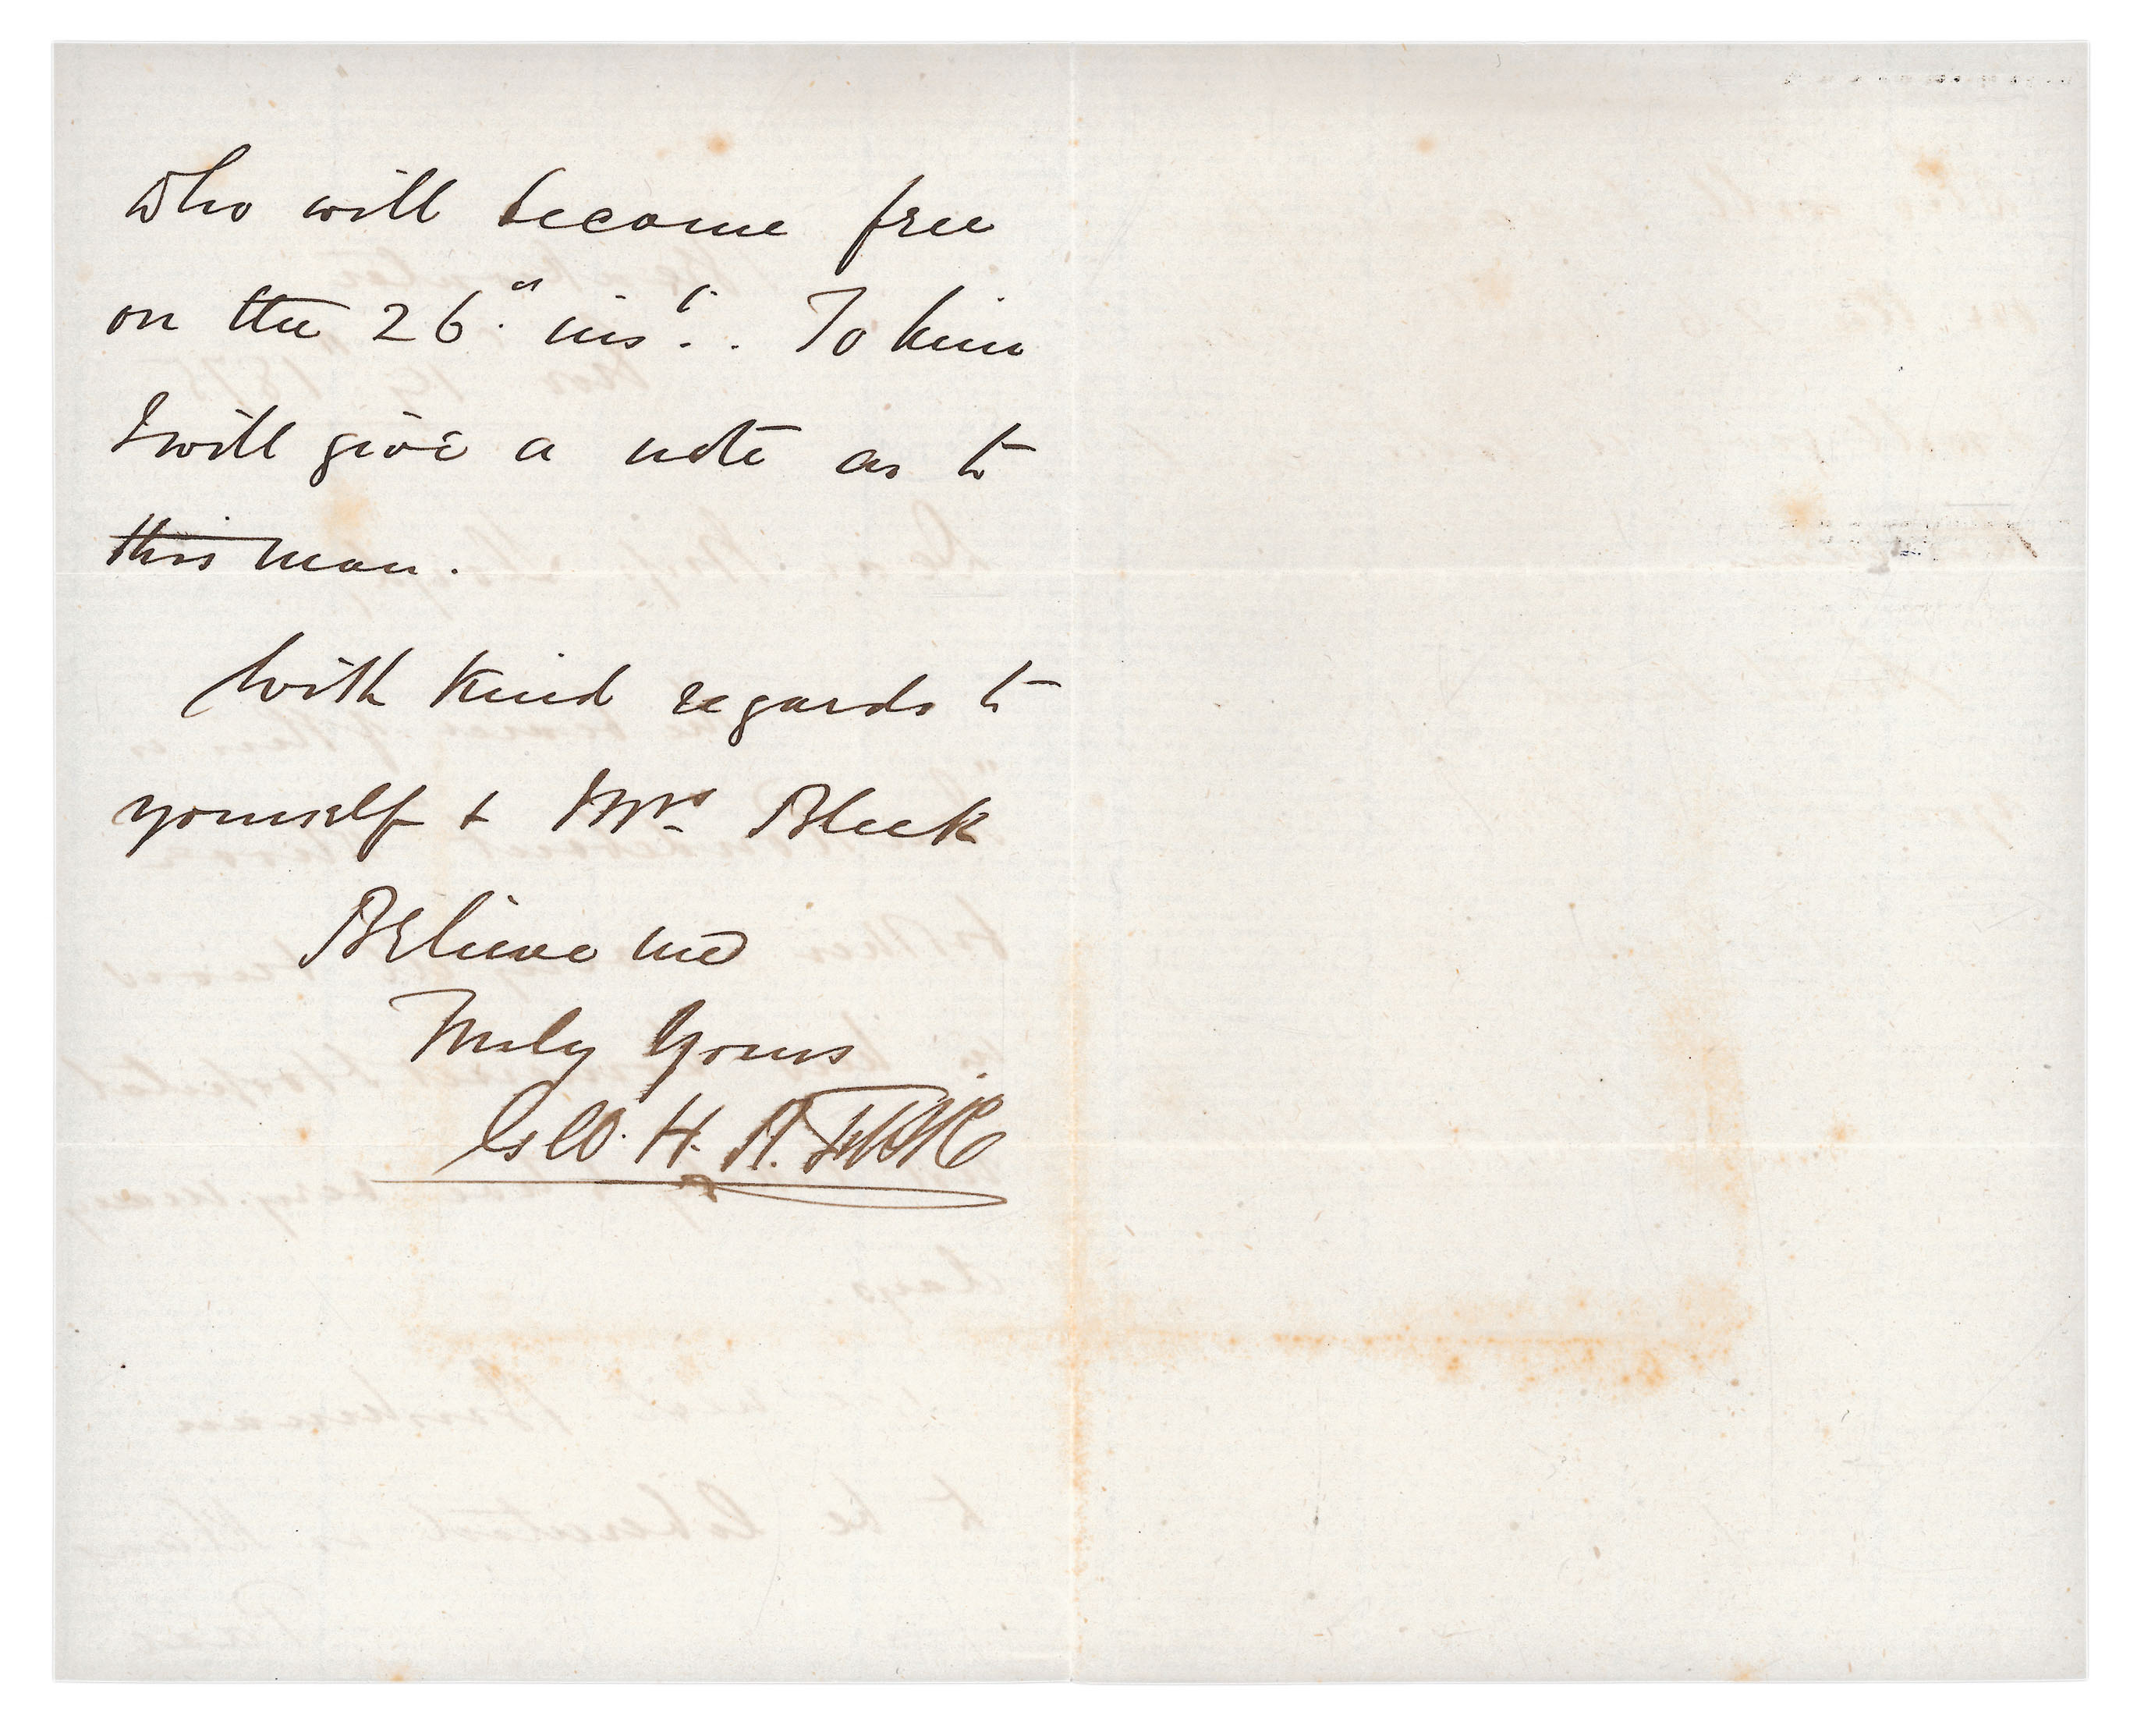 who will become free
on the 26.th inst. . To him
I will give a note as to
this man.
With kind regards to
yourself & Mrs Bleek
Believe me
Truly Yours
Geo. H. B.